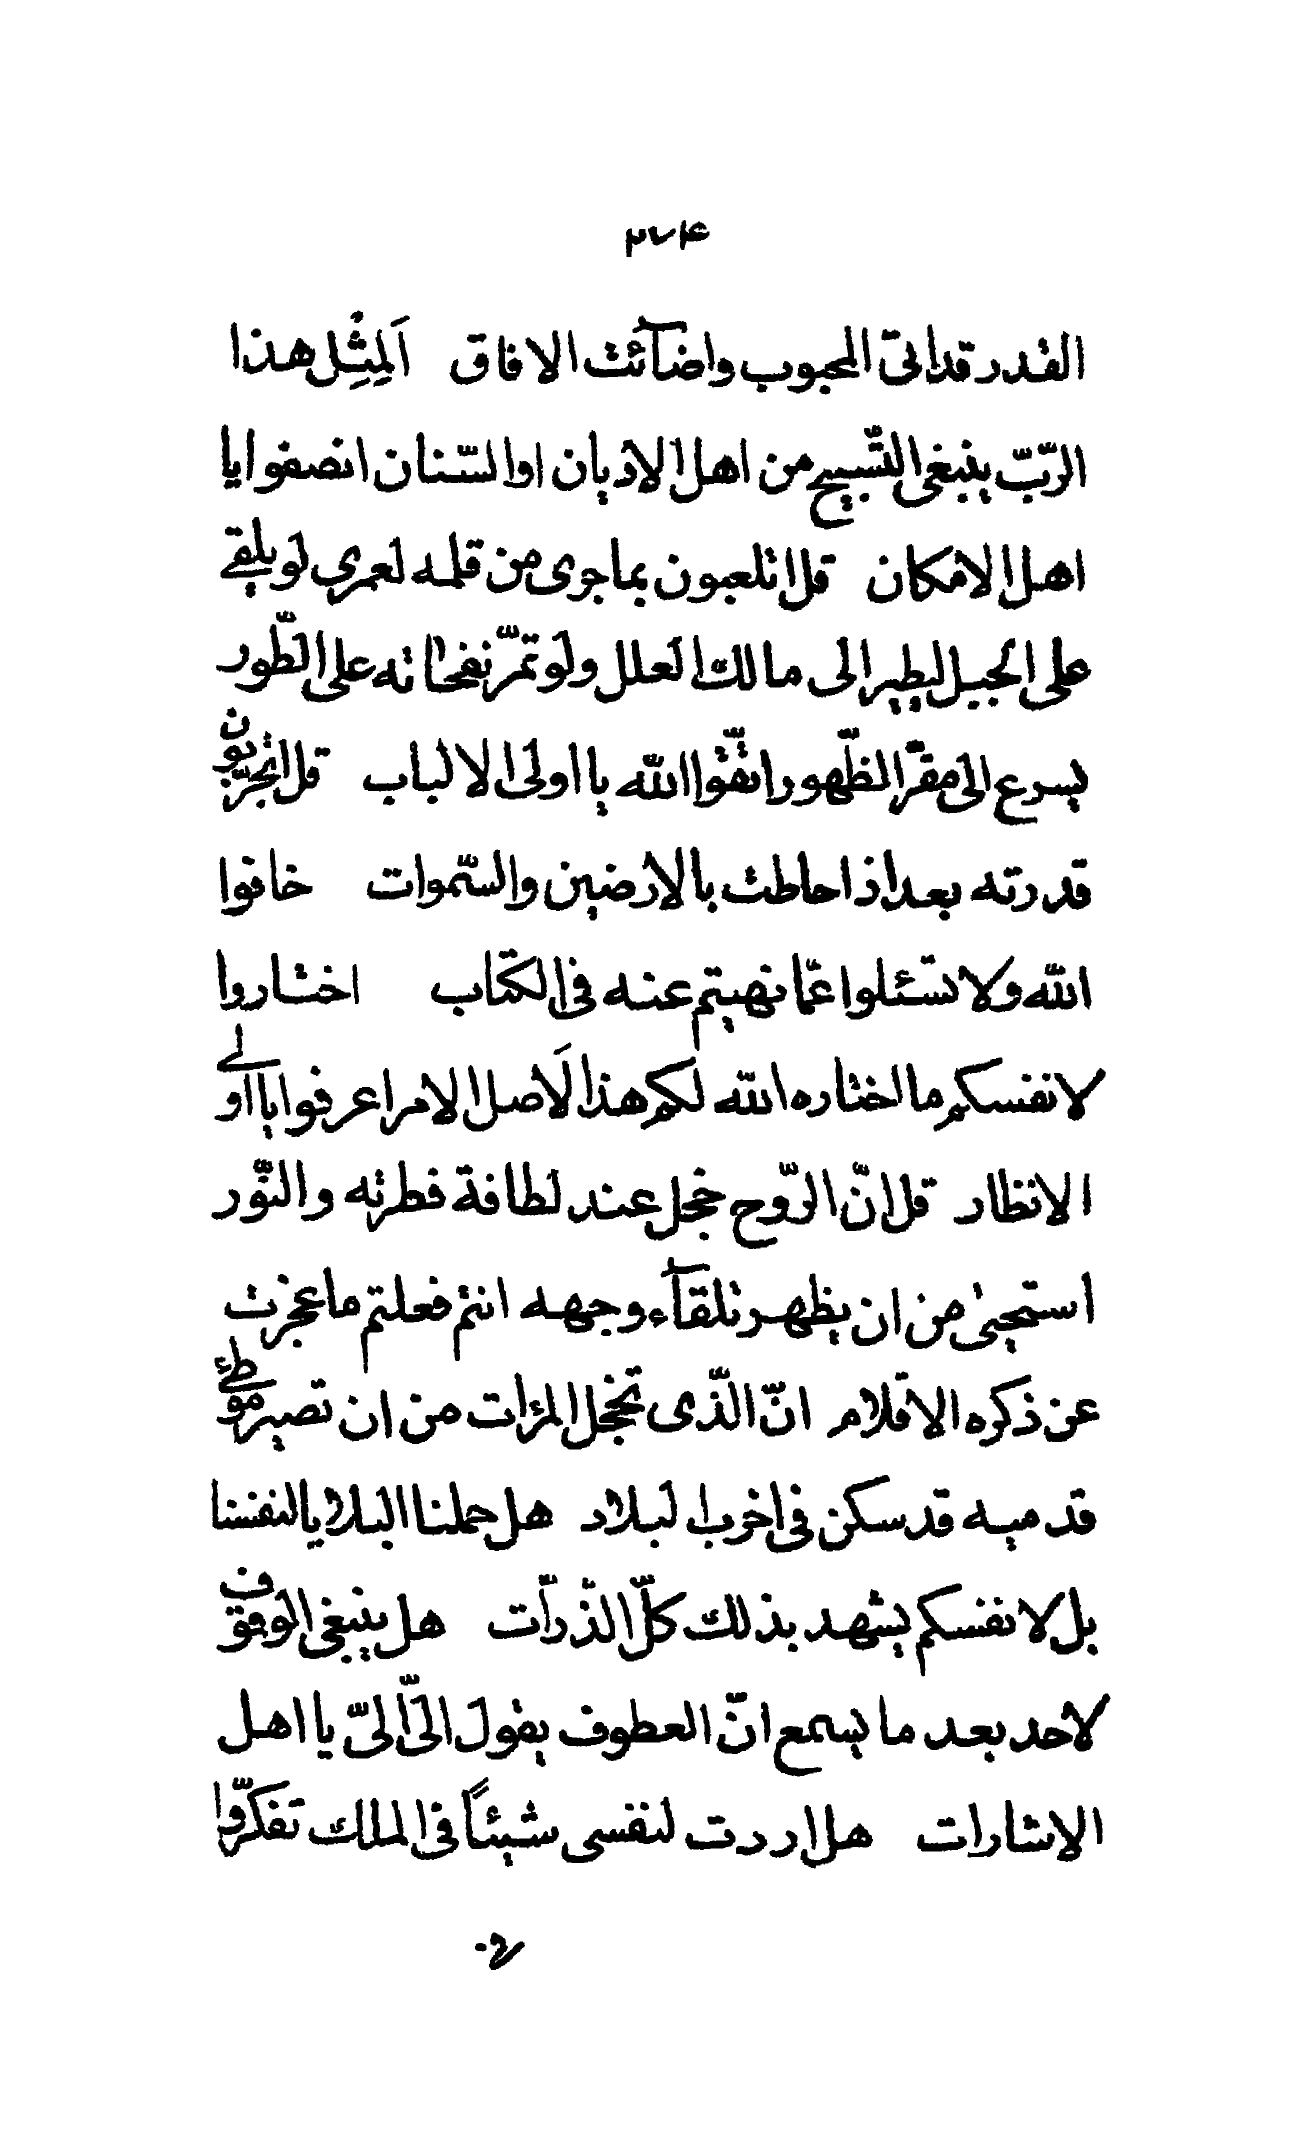 القدر قد اتی المحبوب واضآئت الافاق أَلِمِثْلِ هذا
الربّ ینبغی التّسبیح من اهل الادیان او السّنان انصفوا یا
اهل الامکان قل اتلعبون بما جری من قلمه لعمری لو یلقی
علی الجبل لیطیر الی مالک العلل ولو تمرّ نفحاته علی الطّور
یسرع الی مقرّ الظّهور اتّقوا اللّه یا اولی الالباب قل اتجرّبون
قدرته بعد اذ احاطت بالارضین والسّموات خافوا
اللّه ولا تسئلوا عمّا نهیتم عنه فی الکتاب اختاروا
لانفسکم ما اختاره اللّه لکم هذا لَاصل الامر اعرفوا یا اولی
الانظار قل انّ الرّوح خجل عند لطافة فطرته والنّور
استحیی من ان یظهر تلقآء وجهه انتم فعلتم ما عجزت
عن ذکره الاقلام انّ الّذی تخجل المرئات من ان تصیر موطئ
قدمیه قد سکن فی اخرب البلاد هل حملنا البلایا لنفسنا
بل لانفسکم یشهد بذلک کلّ الذّرّات هل ینبغی الوقوف
لاحد بعد ما یسمع انّ العطوف یقول الیّ الیّ یا اهل
الاشارات هل اردت لنفسی شیئاً فی الملک تفکّروا